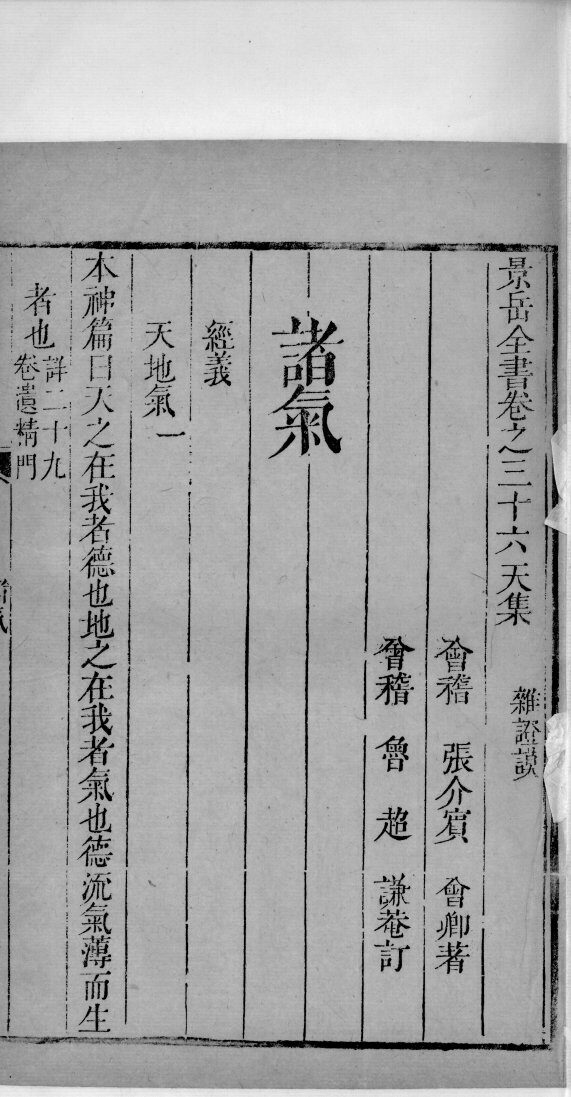 景岳全書卷之三十六天集 雜證謨
會稽 張介賓 會卿著
會稽 魯超 謙菴訂
諸氣
經義
天地氣一
本神篇曰天之在我者德也地之在我者氣也德流氣薄而生
者也詳二十九
卷遺精門